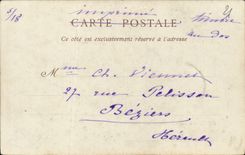 imprimé
5/18
CARTE POSTALE
Ce côté est exclusivement réservé à l'adresse
timbre
au dos
Mme Ch. Viennet
27 rue Pelisson
Béziers
Hérault